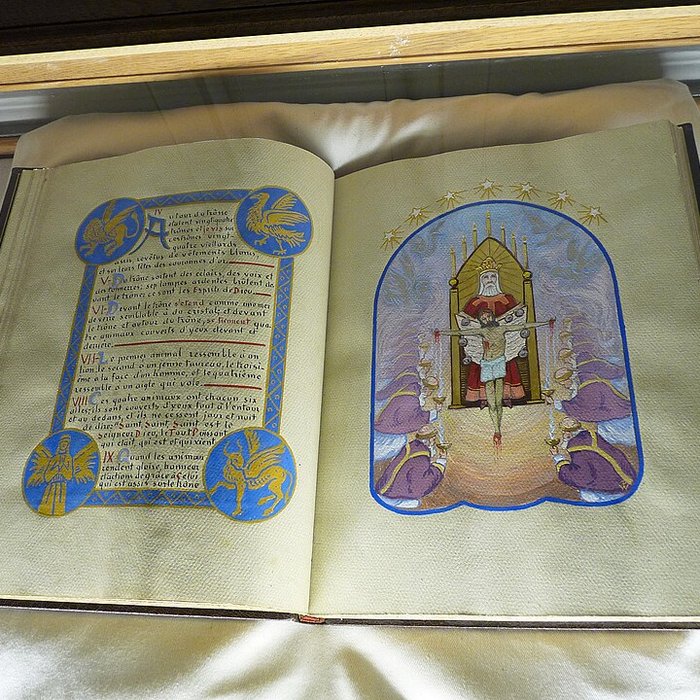 IV
Autour du trône
étaient vingt-quatre
trônes et je vis sur
ces trônes vingt-
quatre vieillards
assis, revêtus de vêtements blancs,
et sur leurs têtes des couronnes d'or
V-Du trône sortent des éclairs, des voix et
des tonnerres; sept lampes ardentes brûlent de-
vant le trône: ce sont les Esprits de Dieu
VI-Devant le trône s'étend comme une mer
de verre semblable à du cristal; et devant
le trône et autour du trône, se tiennent qua-
tre animaux couverts d'yeux devant et
derrière
VII-Le premier animal ressemble à un
lion, le second à un jeune taureau, le troisi-
ème a la face d'un homme, et le quatrième
ressemble à un aigle qui vole
VIII Ces quatre animaux ont chacun six
ailes; ils sont couverts d'yeux tout à l'entour
et au dedans, et ils ne cessent jour et nuit
de dire: Saint, Saint, Saint est le
Seigneur Dieu, le Tout Puissant
qui était, qui est et qui vient
IX-Quand les animaux
rendent gloire, honneur
et action de grâce à Celui
qui est assis sur le trône